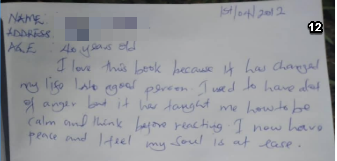 1st/04/2012
12
NAME:
ADDRESS:
AGE: 20 years old
I love this book because it has changed
my life to a good person. I used to have alot
of anger but it has taught me how to be
calm and think before reacting. I now have
peace and I feel my soul is at ease.